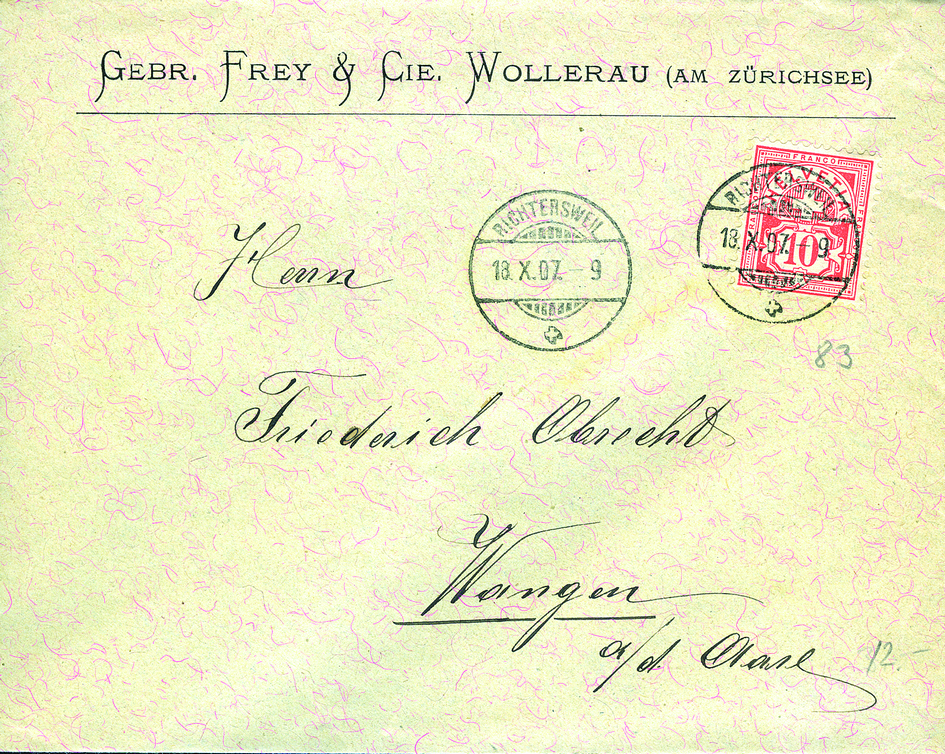 GEBR. FREY & CIE. WOLLERAU (AM ZÜRICHSEE)
FRANCO
HELVETIA
10
RICHTERSWEIL
18.X.07.-9
RICHTERSWEIL
18.X.07.-9
83
Herrn
Friederich Obrecht
Wangen
a/d. Aare
12.-